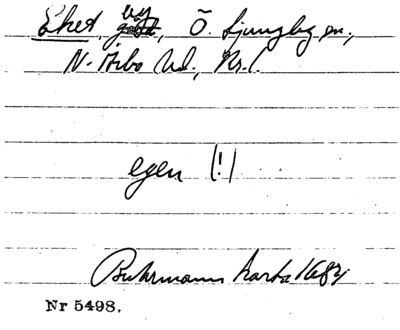 Eket, by, Ö. Ljungby sn.,
N. Åsbo hd., Kr. l.
egen (!)
Buhrmanns karta 1684
Nr 5498.